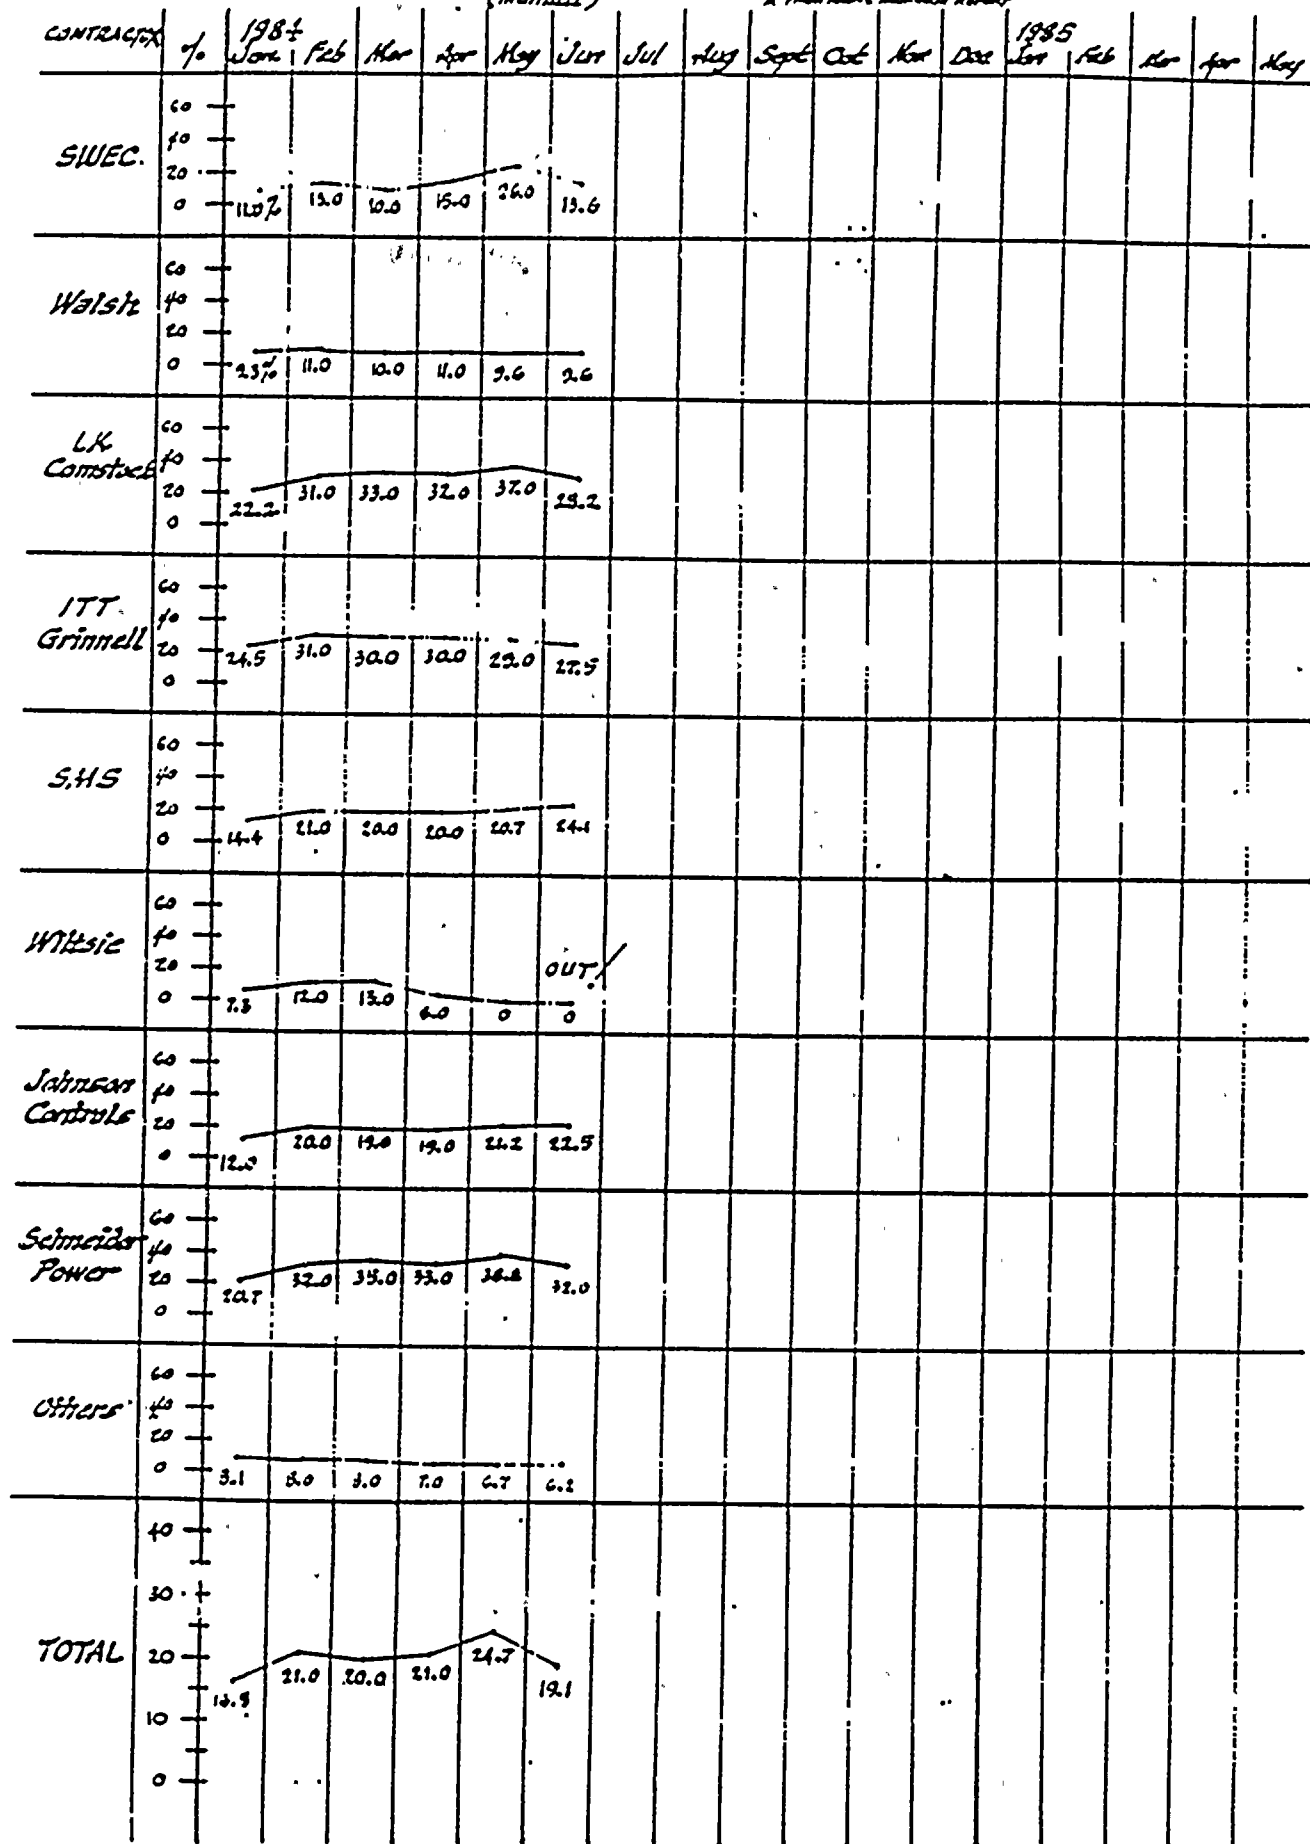 (MONTHLY)
CONTRACTOR % 1984 Jan Feb Mar Apr May Jun Jul Aug Sept Oct Nov Dec 1985 Jan Feb Mar Apr May
SWEC.
60
40
20
0
11.0% 13.0 10.0 15.0 26.0 13.6
Walsh
60
40
20
0
11.0 10.0 11.0 9.6 9.6
LK
Comstock
60
40
20
0
22.2 31.0 33.0 32.0 37.0 29.2
ITT
Grinnell
60
40
20
0
24.5 31.0 30.0 30.0 29.0 27.5
S.H.S
60
40
20
0
14.4 21.0 20.0 20.0 20.7 24.1
Wiltsie
60
40
20
0
OUT
7.3 12.0 13.0 6.0 0 0
Johnson
Controls
60
40
20
0
12.0 20.0 19.0 19.0 21.2 22.5
Schneider
Power
60
40
20
0
20.7 32.0 35.0 33.0 38.8 32.0
Others
60
40
20
0
7.0 6.7 6.2
TOTAL
40
30
20
10
0
21.0 20.0 21.0 24.7 19.1